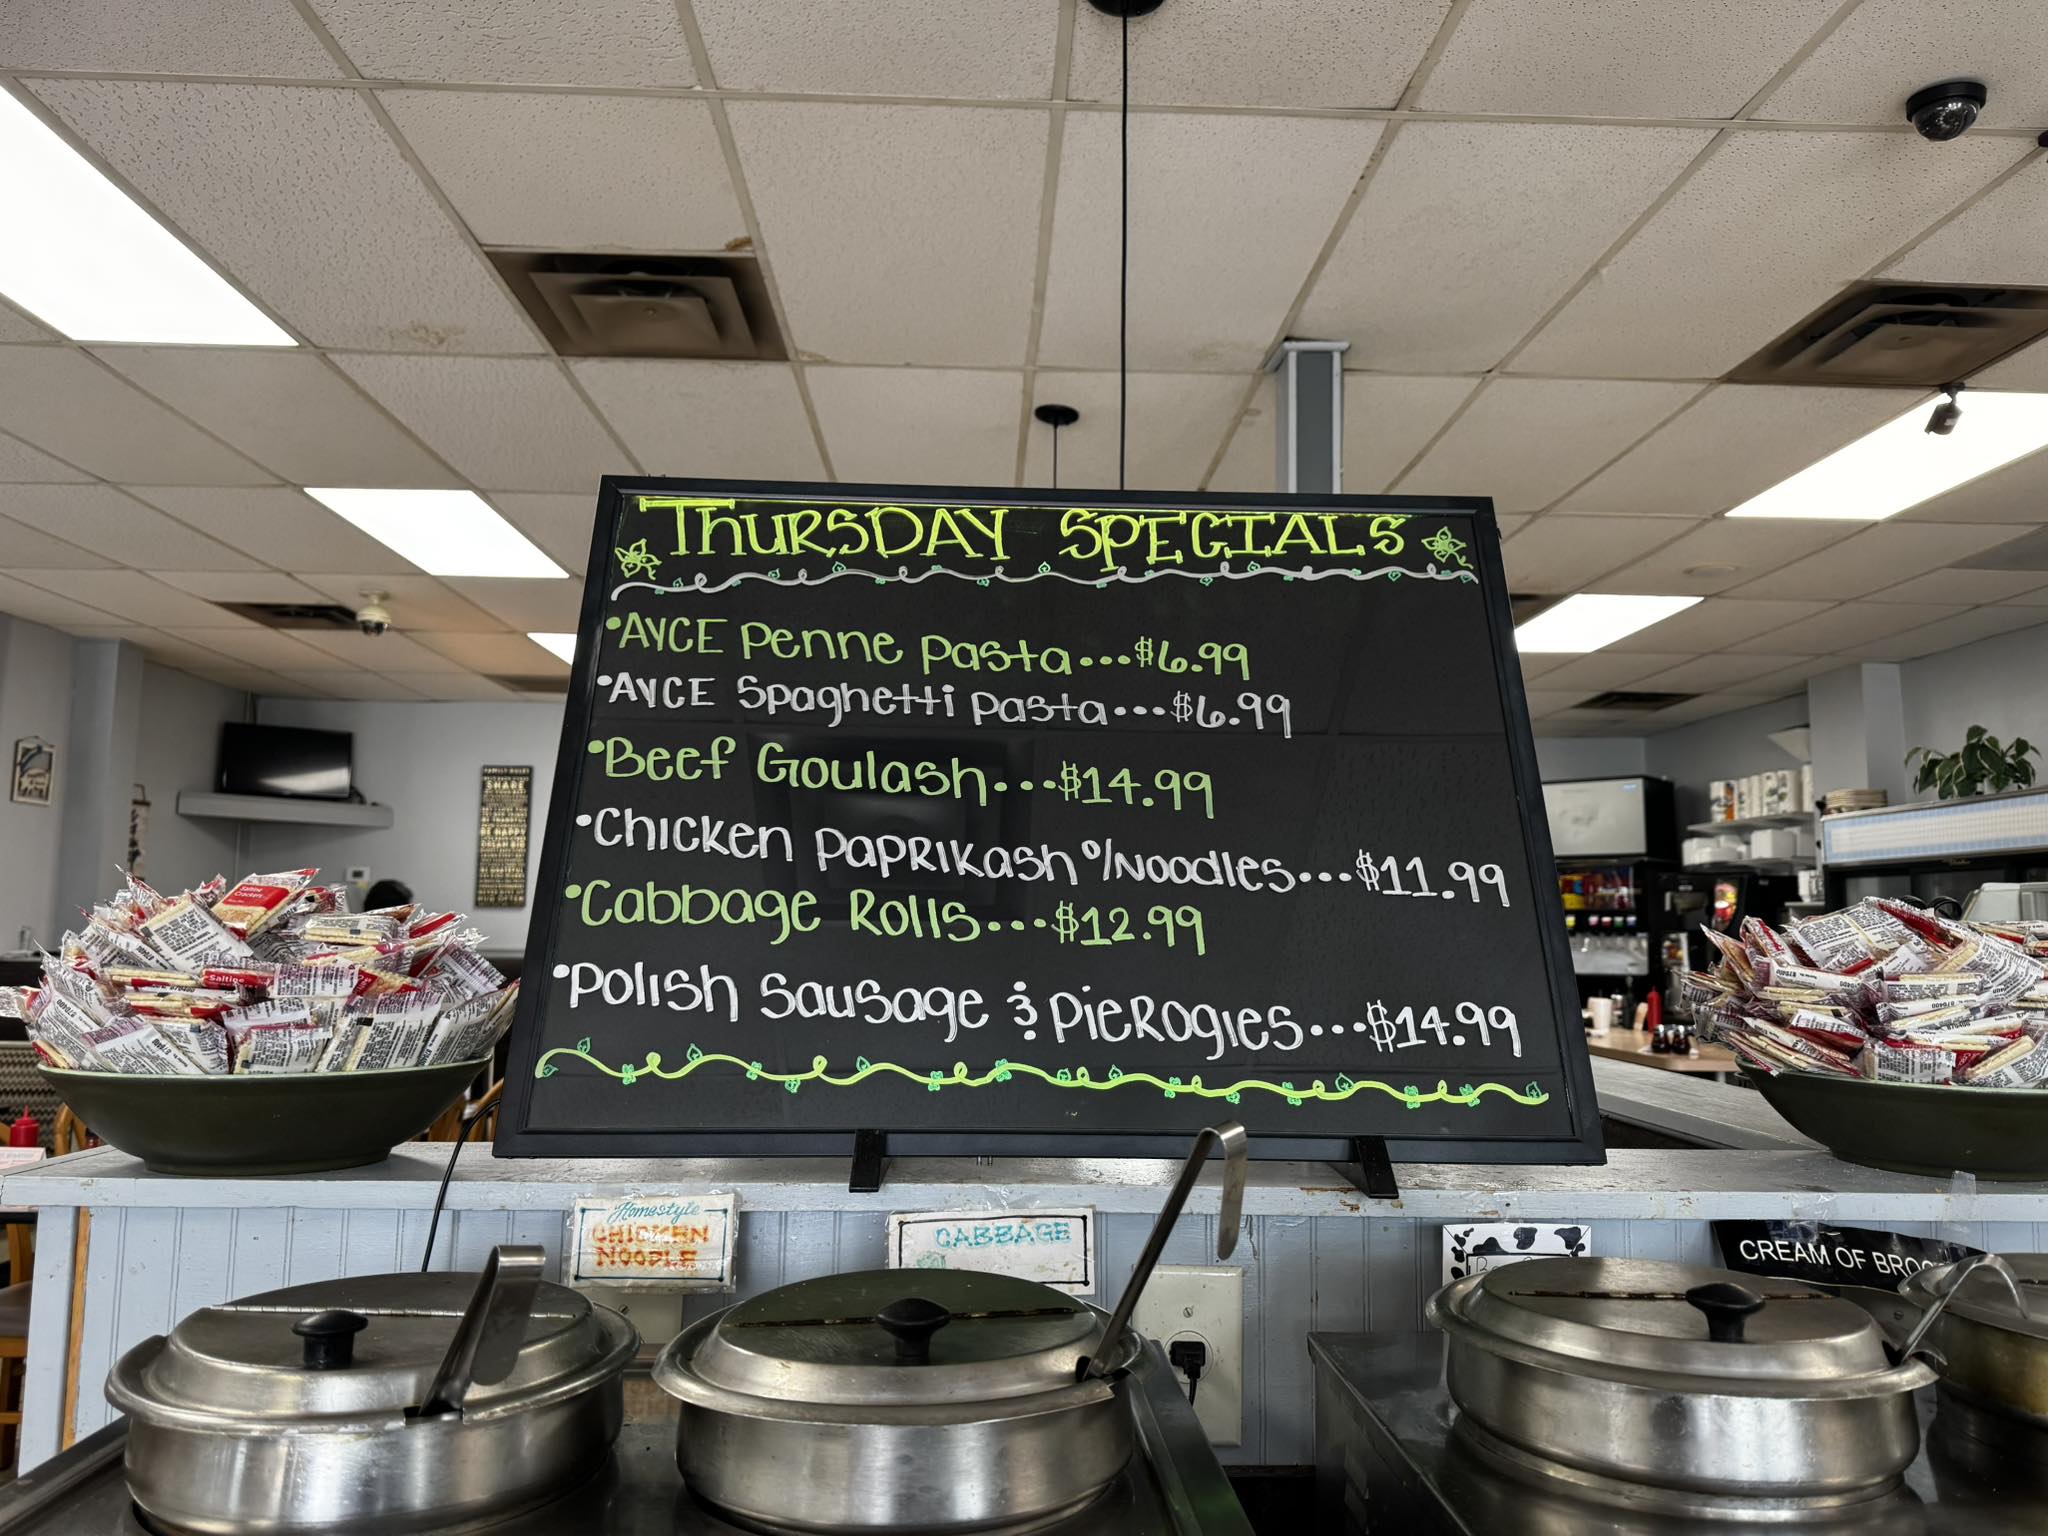 THURSDAY SPECIALS
•AYCE Penne Pasta...$6.99
•AYCE Spaghetti Pasta...$6.99
•Beef Goulash...$14.99
•Chicken Paprikash w/Noodles...$11.99
•Cabbage Rolls...$12.99
•Polish Sausage & Pierogies...$14.99
FAMILY RULES
SHARE
Saltine
Crackers
Saltine
Homestyle
CHICKEN
NOODLE
CABBAGE
CREAM OF